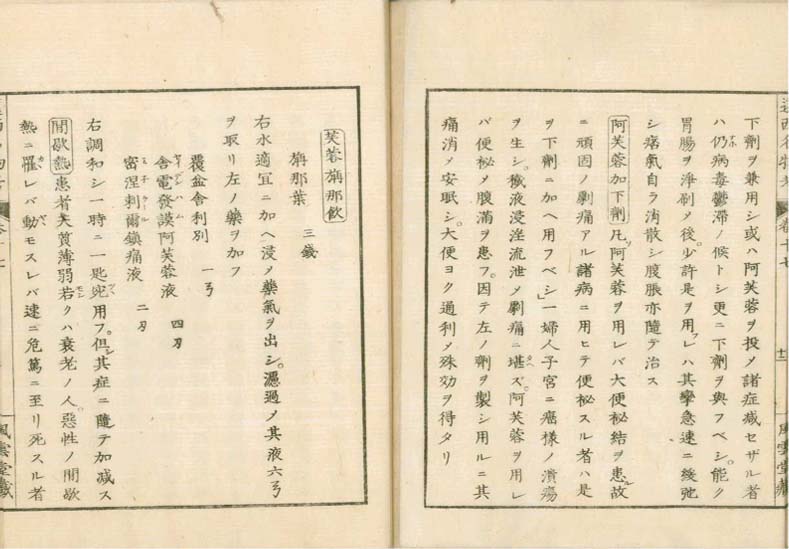 下劑ヲ兼用シ或ハ阿芙蓉ヲ投メ諸症減セザル者
ハ仍病毒鬱滞ノ候トシ更ニ下劑ヲ與フベシ。能ク
胃腸ヲ淨刷メ後。少許是ヲ用レハ其攣急速ニ緩弛
シ痞氣自ラ消散シ腹脹亦隨テ治ス
阿芙蓉加下劑 凡ソ阿芙蓉ヲ用レバ大便秘結ヲ患。故
ニ頑固ノ劇痛アル諸病ニ用ヒテ便秘スル者ハ是
ヲ下劑ニ加ヘ用フベシ」一婦人子宮ニ癌樣ノ潰瘍
ヲ生シ。穢液浸淫流泄メ劇痛ニ堪ズ。阿芙蓉ヲ用レ
バ便秘メ腹滿ヲ患フ。因テ左ノ劑ヲ製シ用ルニ其
痛消メ安眠シ。大便ヨク通利メ殊効ヲ得タリ
十七
風雲堂藏
芙蓉旃那飲
旃那葉 三錢
右水適宜ニ加ヘ浸メ藥氣ヲ出シ。濾過メ其液六弓
ヲ取リ左ノ藥ヲ加フ
覆盆舍利別 一弓
舍電發謨阿芙蓉液 四刃
密涅剌爾鎮痛液 二刃
右調和シ一時ニ一匙兊用フ。但シ其症ニ隨テ加減ス
間歇熱 患者夭質薄弱若クハ衰老ノ人。惡性ノ間歇
熱ニ罹レバ動モスレバ速ニ危篤ニ至リ死スル者
風雲堂藏